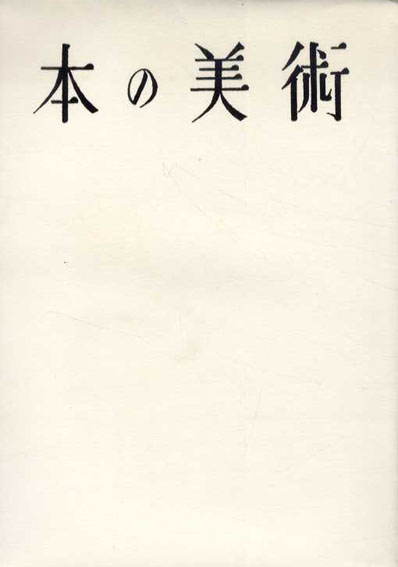 本の美術